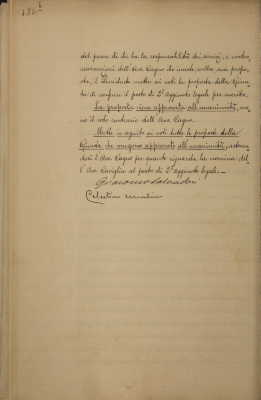 del parere di chi ha la responsabilità dei servizi, e contro
osservazioni dell'Avv. Cagno che insiste sulla sua propo-
sta, il Presidente mette ai voti la proposta della Giun-
ta di conferire il posto di 2º aggiunto legale per merito.
La proposta viene approvata all'unanimità, me-
no il voto contrario dell'Avv. Cagno.
Mette in seguito ai voti tutte le proposte della
Giunta che vengono approvate all'unanimità, astenu-
tosi l'Avv. Cagno per quanto riguarda la nomina del
l'Avv. Caviglia al posto di 2º aggiunto legale.
Celestino